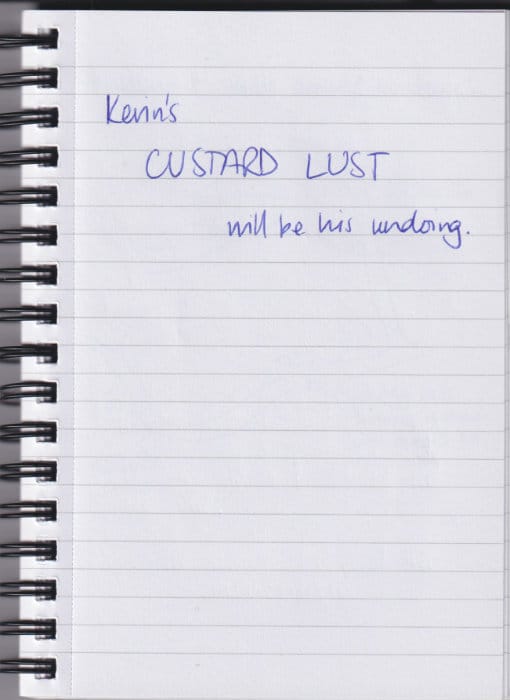 Kevin's
CUSTARD LUST
will be his undoing.